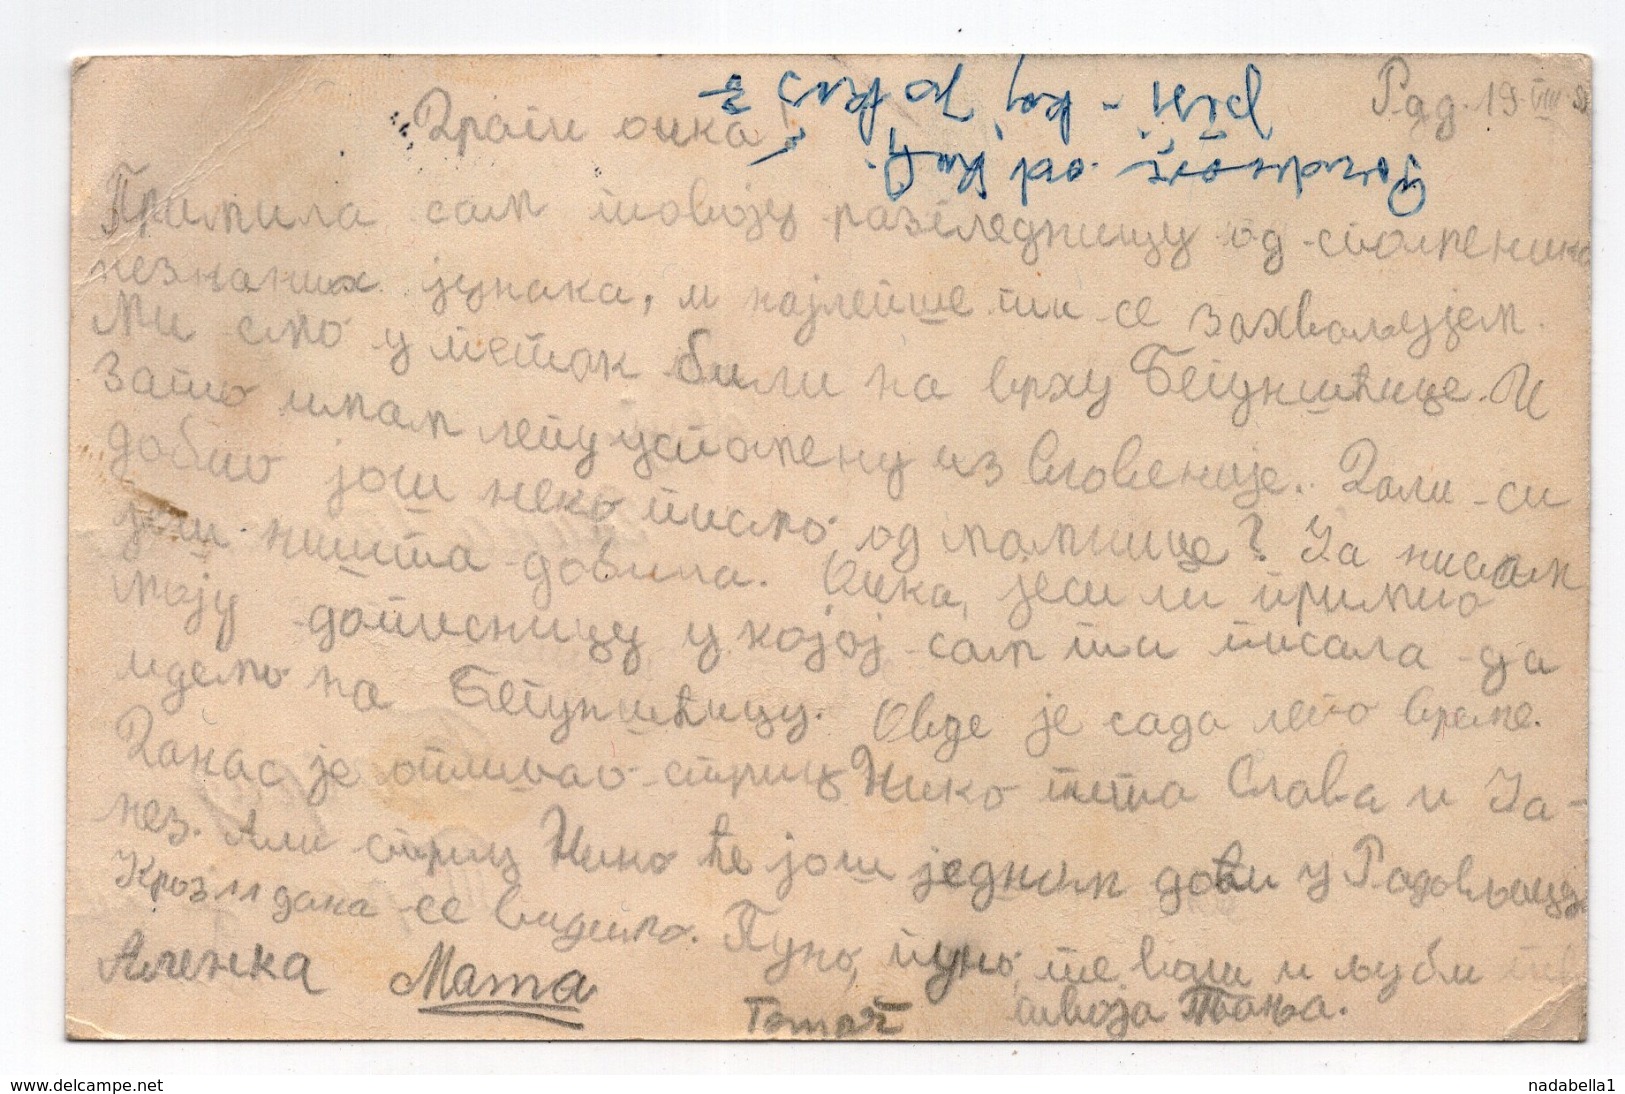 Рад. 19. VIII.
Драги очка!
Pozdrav od
piši - kaj
Примила сам твоју разгледницу од споменика
незнаних јунака, и најлепше ти се захваљујем.
Ми смо у петак били на врху Бегуншћице. И
зато имам лепу успомену из Словеније. Дали си
добио још неко писмо од мамице? Ја нисам
још ништа добила. Очка, јеси ли примио
моју дописницу у којој сам ти писала да
идемо на Бегуншћицу. Овде је сада лепо време.
Данас је отишао стриц Нико тета Слава и Ја-
нез. Али стриц Нико ће још једном доћи у Радовљицу.
Кроз 11 дана се видимо. Пуно, пуно, те воли и љуби
твоја Тања.
Аленка Мата
www.delcampe.net
nadabella1